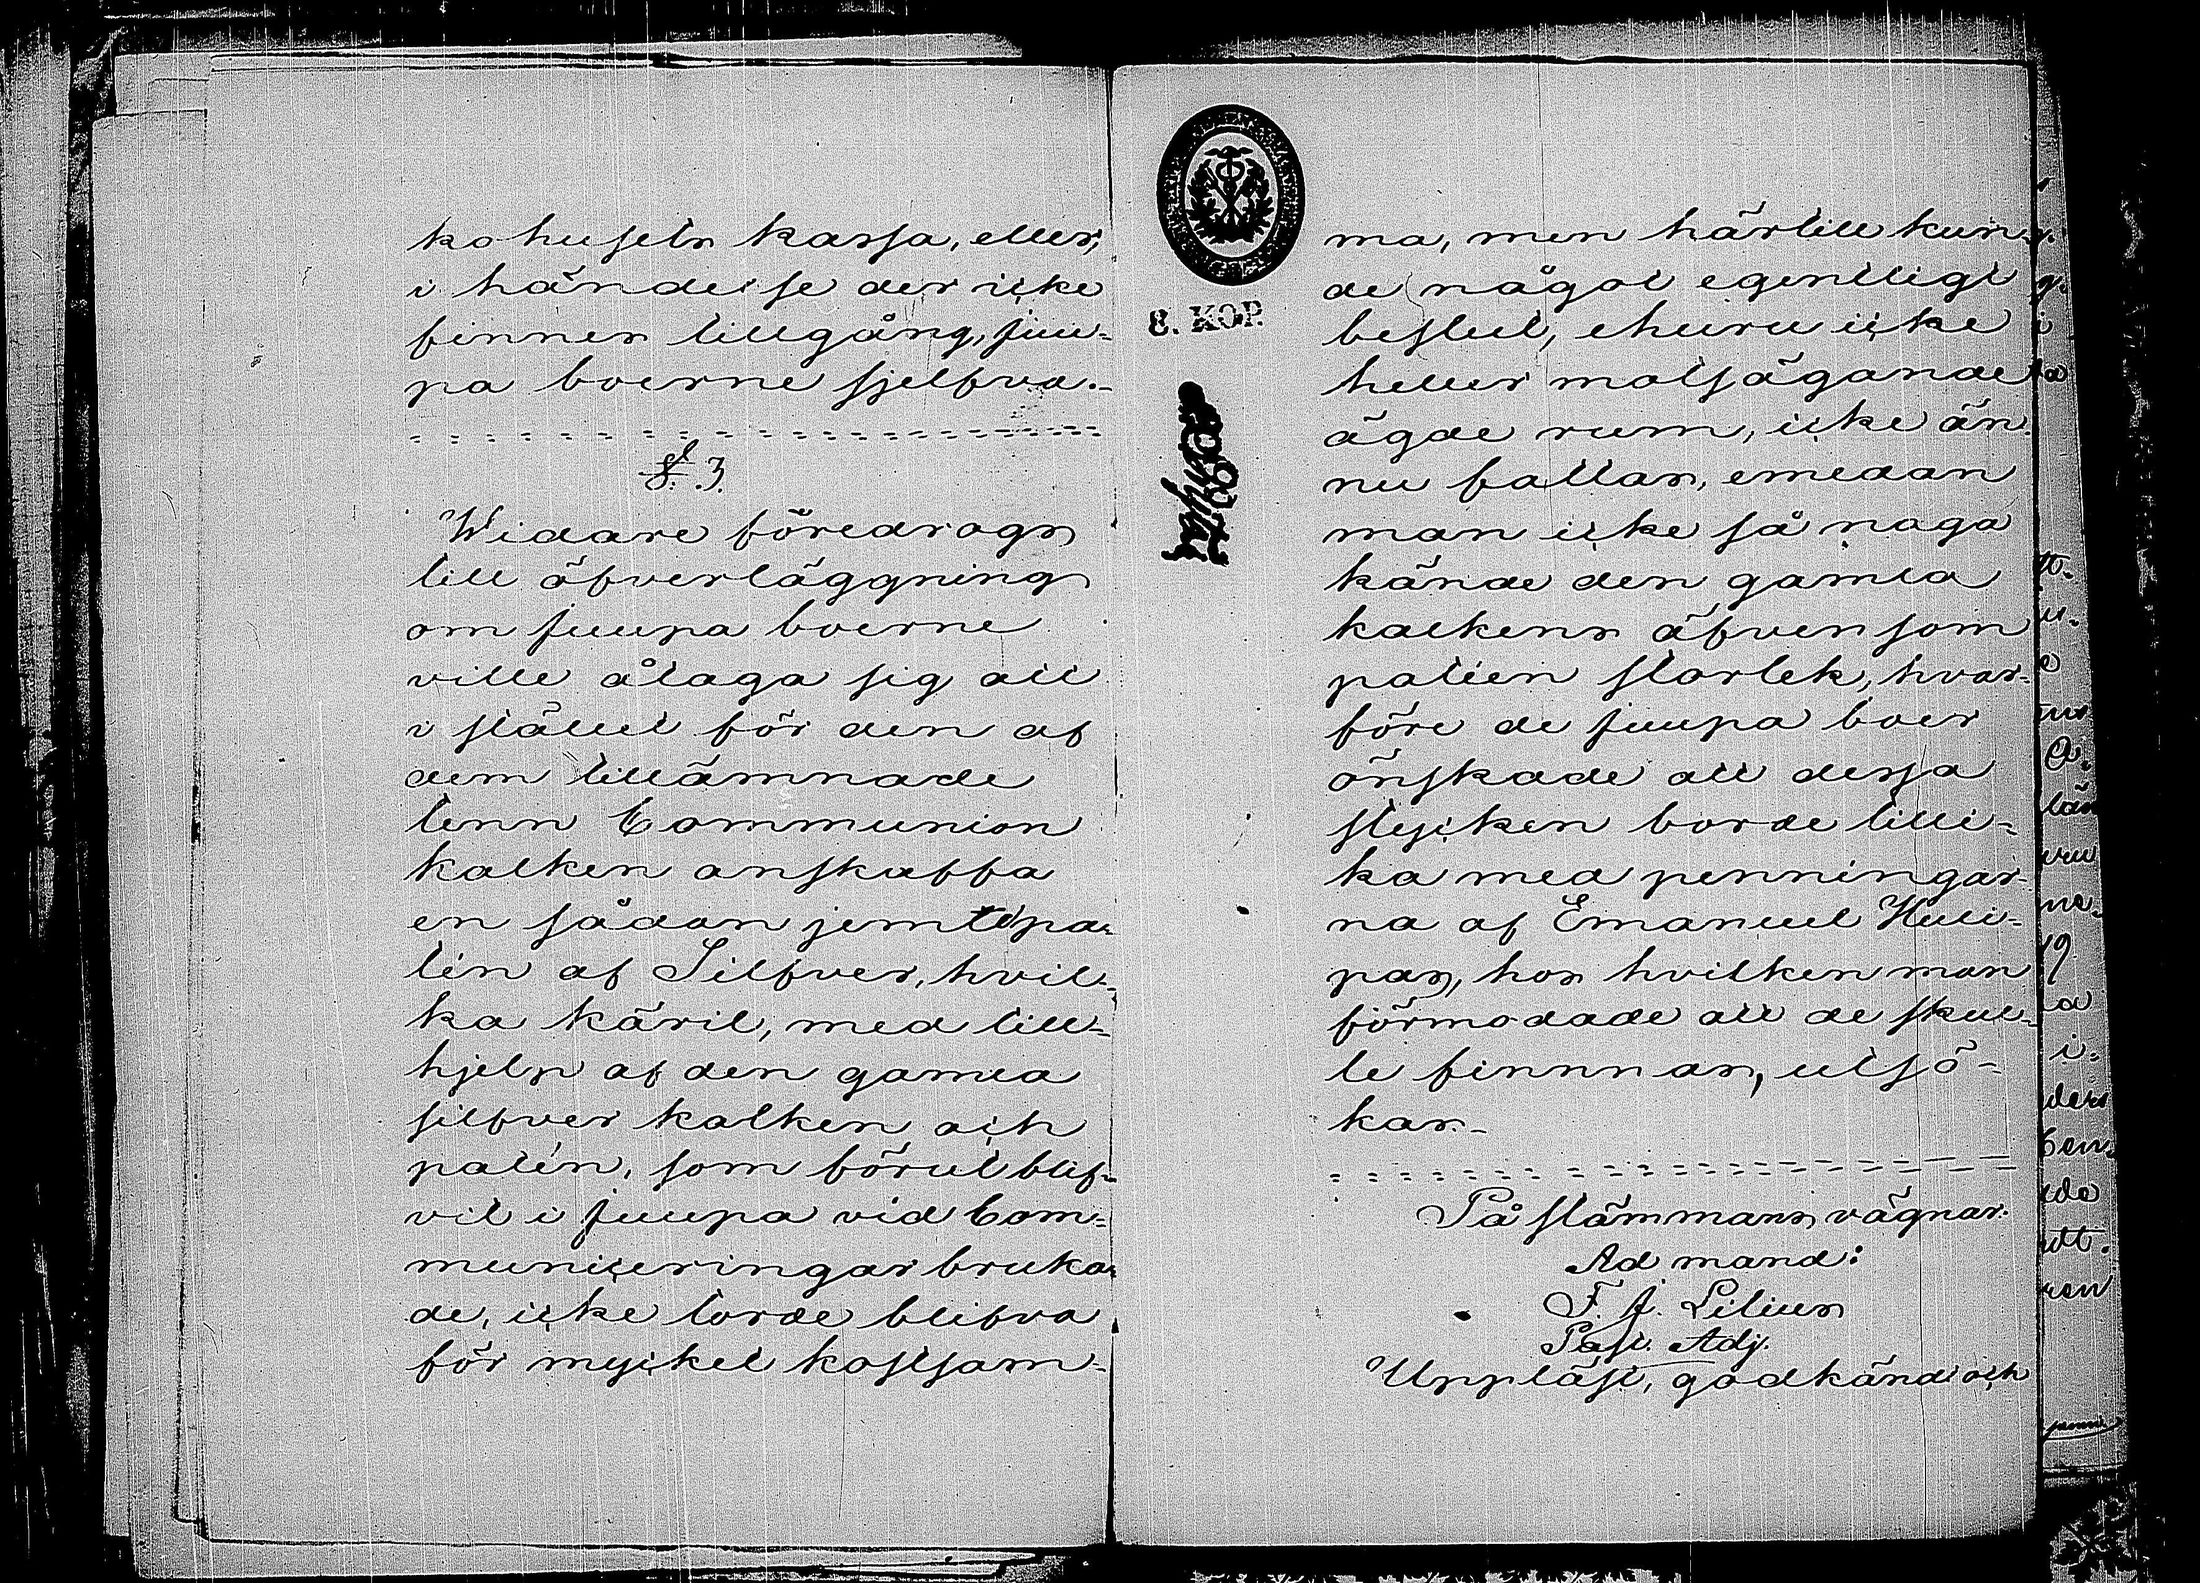 kohusets kassa, eller,
i händelse der icke
finnes tillgång, Juu-
pa boerne sjelfva.
§. 3.
Widare föredrogs
till öfverläggning
om Juupa boerne
ville ålaga sig att
i stället för den af
dem tillämnade
tenn Communion
kalken anskaffa
en sådan jemte pa-
tén af Silfver, hvil-
ka käril, med till-
hjelp af den gamla
silfver kalken och
patén, som förut blif-
vit i Juupa vid Com-
municeringar bruka-
de, icke torde blifva
för myckel kostsam-
8. KOP.
ma, men härtill kun-
de något egentligt
beslut, ehuru icke
heller motsägande
ägde rum, icke än
nu fattas, emedan
man icke så noga
kände den gamla
kalkens äfvensom
paténs storlek, hvar-
före de Juupa boer
önskade att dessa
stycken borde tilli-
ka med penningar-
na af Emanuel Huli-
pas, hos hvilken man
förmodade att de skul-
le finnnas, utsö-
kas.
På stämmans vägnar:
Ad mand:
F. J. Lilius
Past. Adj.
Uppläst, godkändt och